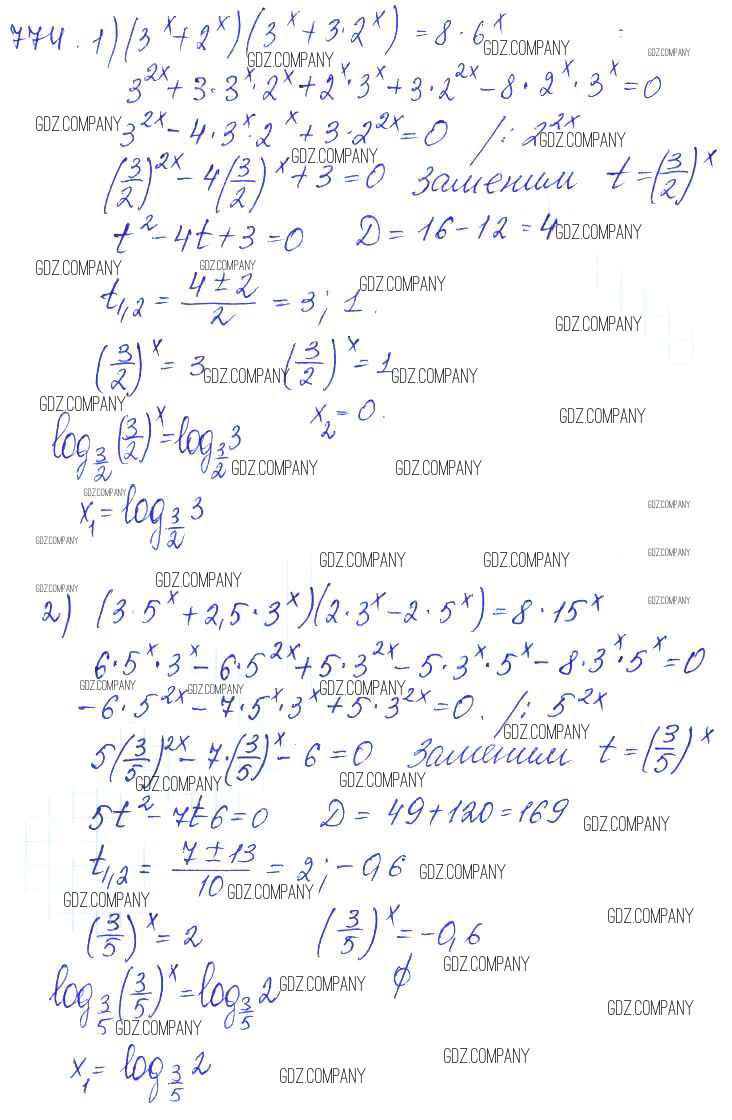 774. 1) (3^x + 2^x)(3^x + 3·2^x) = 8·6^x
GDZ.COMPANY GDZ.COMPANY GDZ.COMPANY
3^{2x} + 3·3^x·2^x + 2^x·3^x + 3·2^{2x} - 8·2^x·3^x = 0
GDZ.COMPANY 3^{2x} - 4·3^x·2^x + 3·2^{2x} = 0 /: 2^{2x} GDZ.COMPANY
GDZ.COMPANY
(3/2)^{2x} - 4(3/2)^x + 3 = 0 Заменим t = (3/2)^x
t^2 - 4t + 3 = 0 D = 16 - 12 = 4 GDZ.COMPANY
GDZ.COMPANY GDZ.COMPANY
t_{1,2} = (4 ± 2)/2 = 3; 1. GDZ.COMPANY
GDZ.COMPANY
(3/2)^x = 3 GDZ.COMPANY (3/2)^x = 1 GDZ.COMPANY
GDZ.COMPANY x_2 = 0. GDZ.COMPANY
log_{3/2} (3/2)^x = log_{3/2} 3 GDZ.COMPANY GDZ.COMPANY
GDZ.COMPANY
x_1 = log_{3/2} 3 GDZ.COMPANY
GDZ.COMPANY
GDZ.COMPANY GDZ.COMPANY GDZ.COMPANY
GDZ.COMPANY GDZ.COMPANY
2) (3·5^x + 2,5·3^x)(2·3^x - 2·5^x) = 8·15^x GDZ.COMPANY
6·5^x·3^x - 6·5^{2x} + 5·3^{2x} - 5·3^x·5^x - 8·3^x·5^x = 0
GDZ.COMPANY GDZ.COMPANY GDZ.COMPANY
-6·5^{2x} - 7·5^x·3^x + 5·3^{2x} = 0. /: 5^{2x}
GDZ.COMPANY
5(3/5)^{2x} - 7·(3/5)^x - 6 = 0 Заменим t = (3/5)^x
GDZ.COMPANY GDZ.COMPANY
5t^2 - 7t - 6 = 0 D = 49 + 120 = 169 GDZ.COMPANY
t_{1,2} = (7 ± 13)/10 = 2; -0,6 GDZ.COMPANY
GDZ.COMPANY GDZ.COMPANY
(3/5)^x = 2 (3/5)^x = -0,6 GDZ.COMPANY
GDZ.COMPANY
log_{3/5} (3/5)^x = log_{3/5} 2 GDZ.COMPANY ∅
GDZ.COMPANY GDZ.COMPANY
x_1 = log_{3/5} 2 GDZ.COMPANY
GDZ.COMPANY